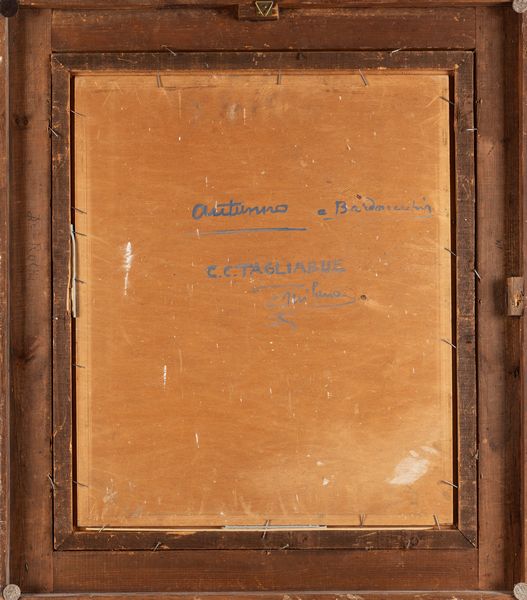 Autunno a Bardonecchia
C.C. TAGLIABUE
Milano